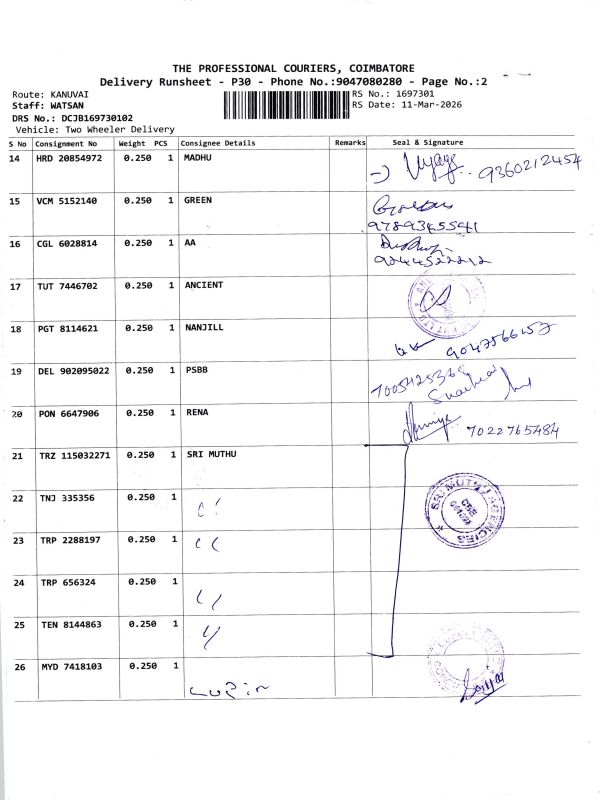 THE PROFESSIONAL COURIERS, COIMBATORE
Delivery Runsheet - P30 - Phone No.:9047080280 - Page No.:2
Route: KANUVAI
RS No.: 1697301
Staff: WATSAN
RS Date: 11-Mar-2026
DRS No.: DCJB169730102
Vehicle: Two Wheeler Delivery
S No Consignment No Weight PCS Consignee Details Remarks Seal & Signature
14 HRD 20854972 0.250 1 MADHU 9360212454
15 VCM 5152140 0.250 1 GREEN
9789345541
16 CGL 6028814 0.250 1 AA
17 TUT 7446702 0.250 1 ANCIENT
18 PGT 8114621 0.250 1 NANJILL
9047566157
19 DEL 902095022 0.250 1 PSBB
20 PON 6647906 0.250 1 RENA
7022765484
21 TRZ 115032271 0.250 1 SRI MUTHU
22 TNJ 335356 0.250 1 SRI MUTHU AGENCIES
23 TRP 2288197 0.250 1
24 TRP 656324 0.250 1
25 TEN 8144863 0.250 1
26 MYD 7418103 0.250 1